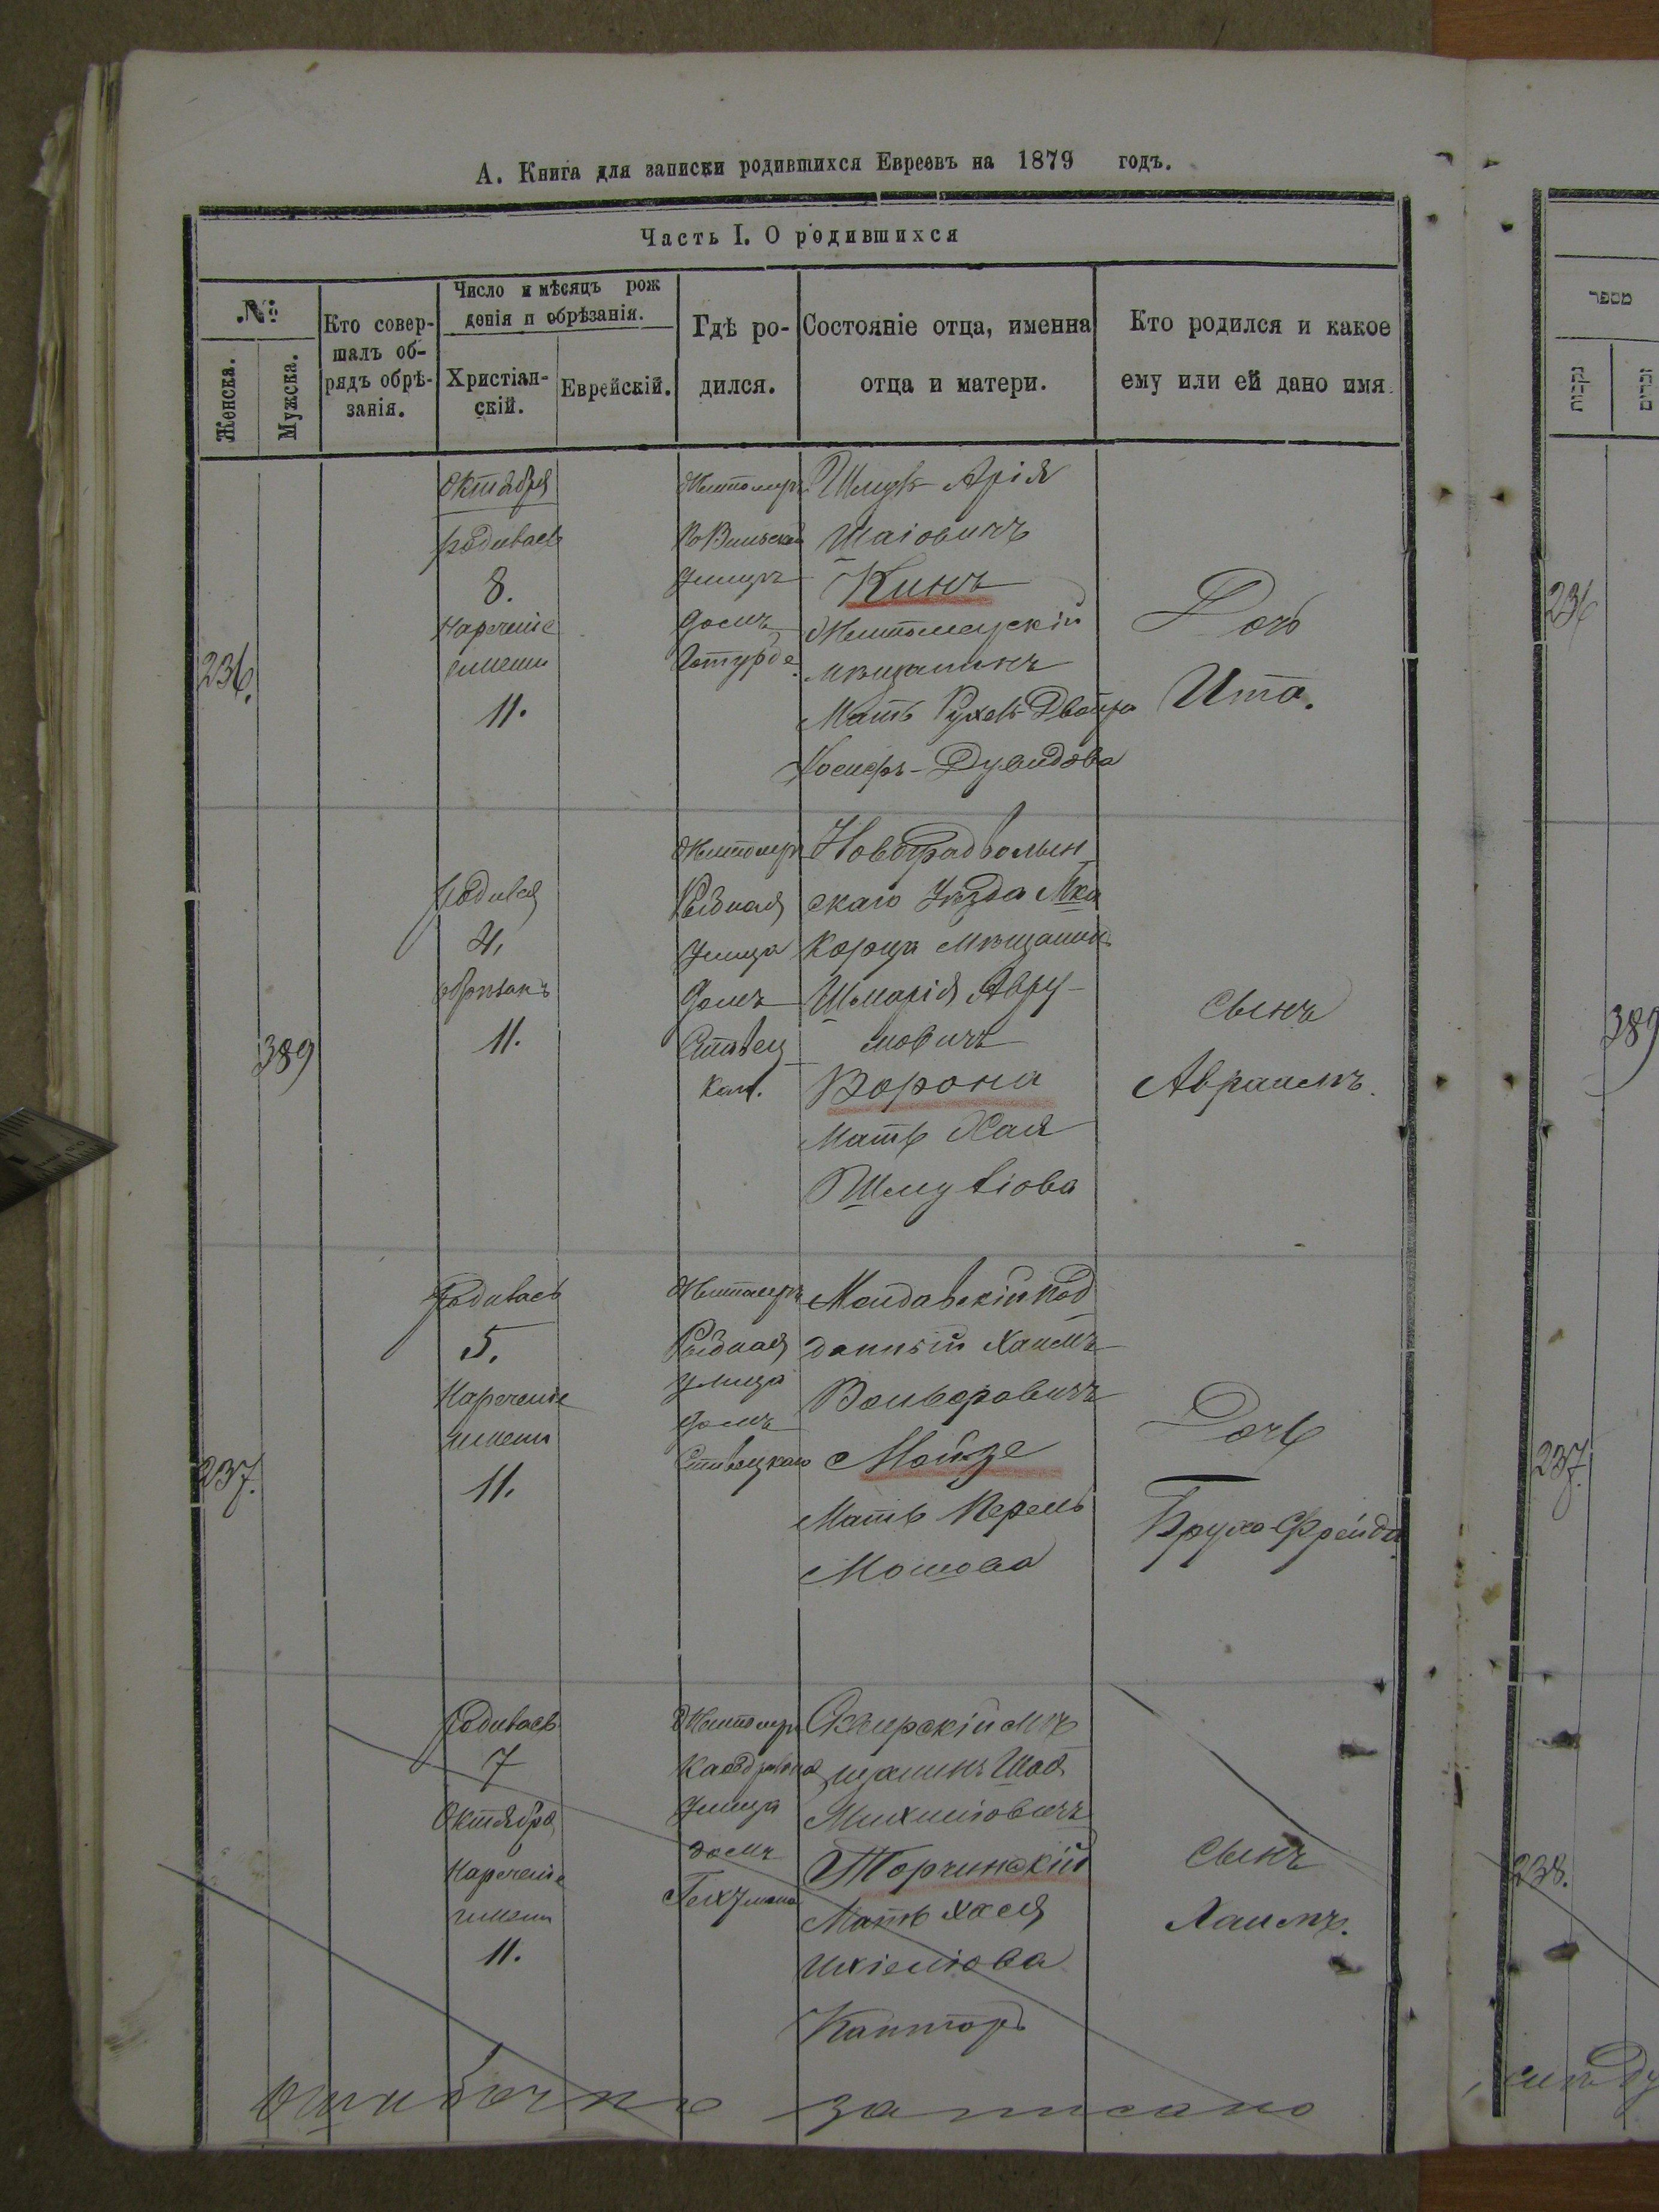 А. Книга для записки родившихся Евреевъ на 1879 годъ.
Часть I. О родившихся
№
Женска.
Мужска.
Кто совер-
шалъ об-
рядъ обрѣ-
занія.
Число и мѣсяцъ рож
денія и обрѣзанія.
Христіан-
скій.
Еврейскій.
Гдѣ ро-
дился.
Состояніе отца, именна
отца и матери.
Кто родился и какое
ему или ей дано имя.
236.
Октября
родилась
8.
Нареченіе
имени
11.
Житомиръ
Вильская
Улица
домъ
Шмуль Арія
Шаіовичъ
Кинъ
Житомирскій
мѣщанинъ
Мать Рухель Двойра
Іосифъ-Дувидова
Дочь
Ита.
389
родился
4.
обрѣзанъ
11.
Житомиръ
Рыбная
Улица
домъ
Новоградволын-
скаго Уѣзда Мка
Корца Мѣщанинъ
Шмарія Авру-
мовичъ
Ворона
Мать Хая
Шмуліова
Сынъ
Авраамъ.
237.
Родилась
5.
Нареченіе
имени
11.
Житомиръ
Рыбная
улица
домъ
Молдавскій под
данный Хаимъ
Волфовичъ
Мойзе
Мать Перель
Мошова
Дочь
Бруха-Фрейда.
родилась
7
Октября
Нареченіе
имени
11.
Житомиръ
Каѳедральная
Улица
домъ
мѣ
щанинъ
Торчинскій
Мать Хася
Ихіеліова
Канторъ
Сынъ
Хаимъ.
ошибочно записано
מספר
נקבות
זכרים
236
389
237.
238.